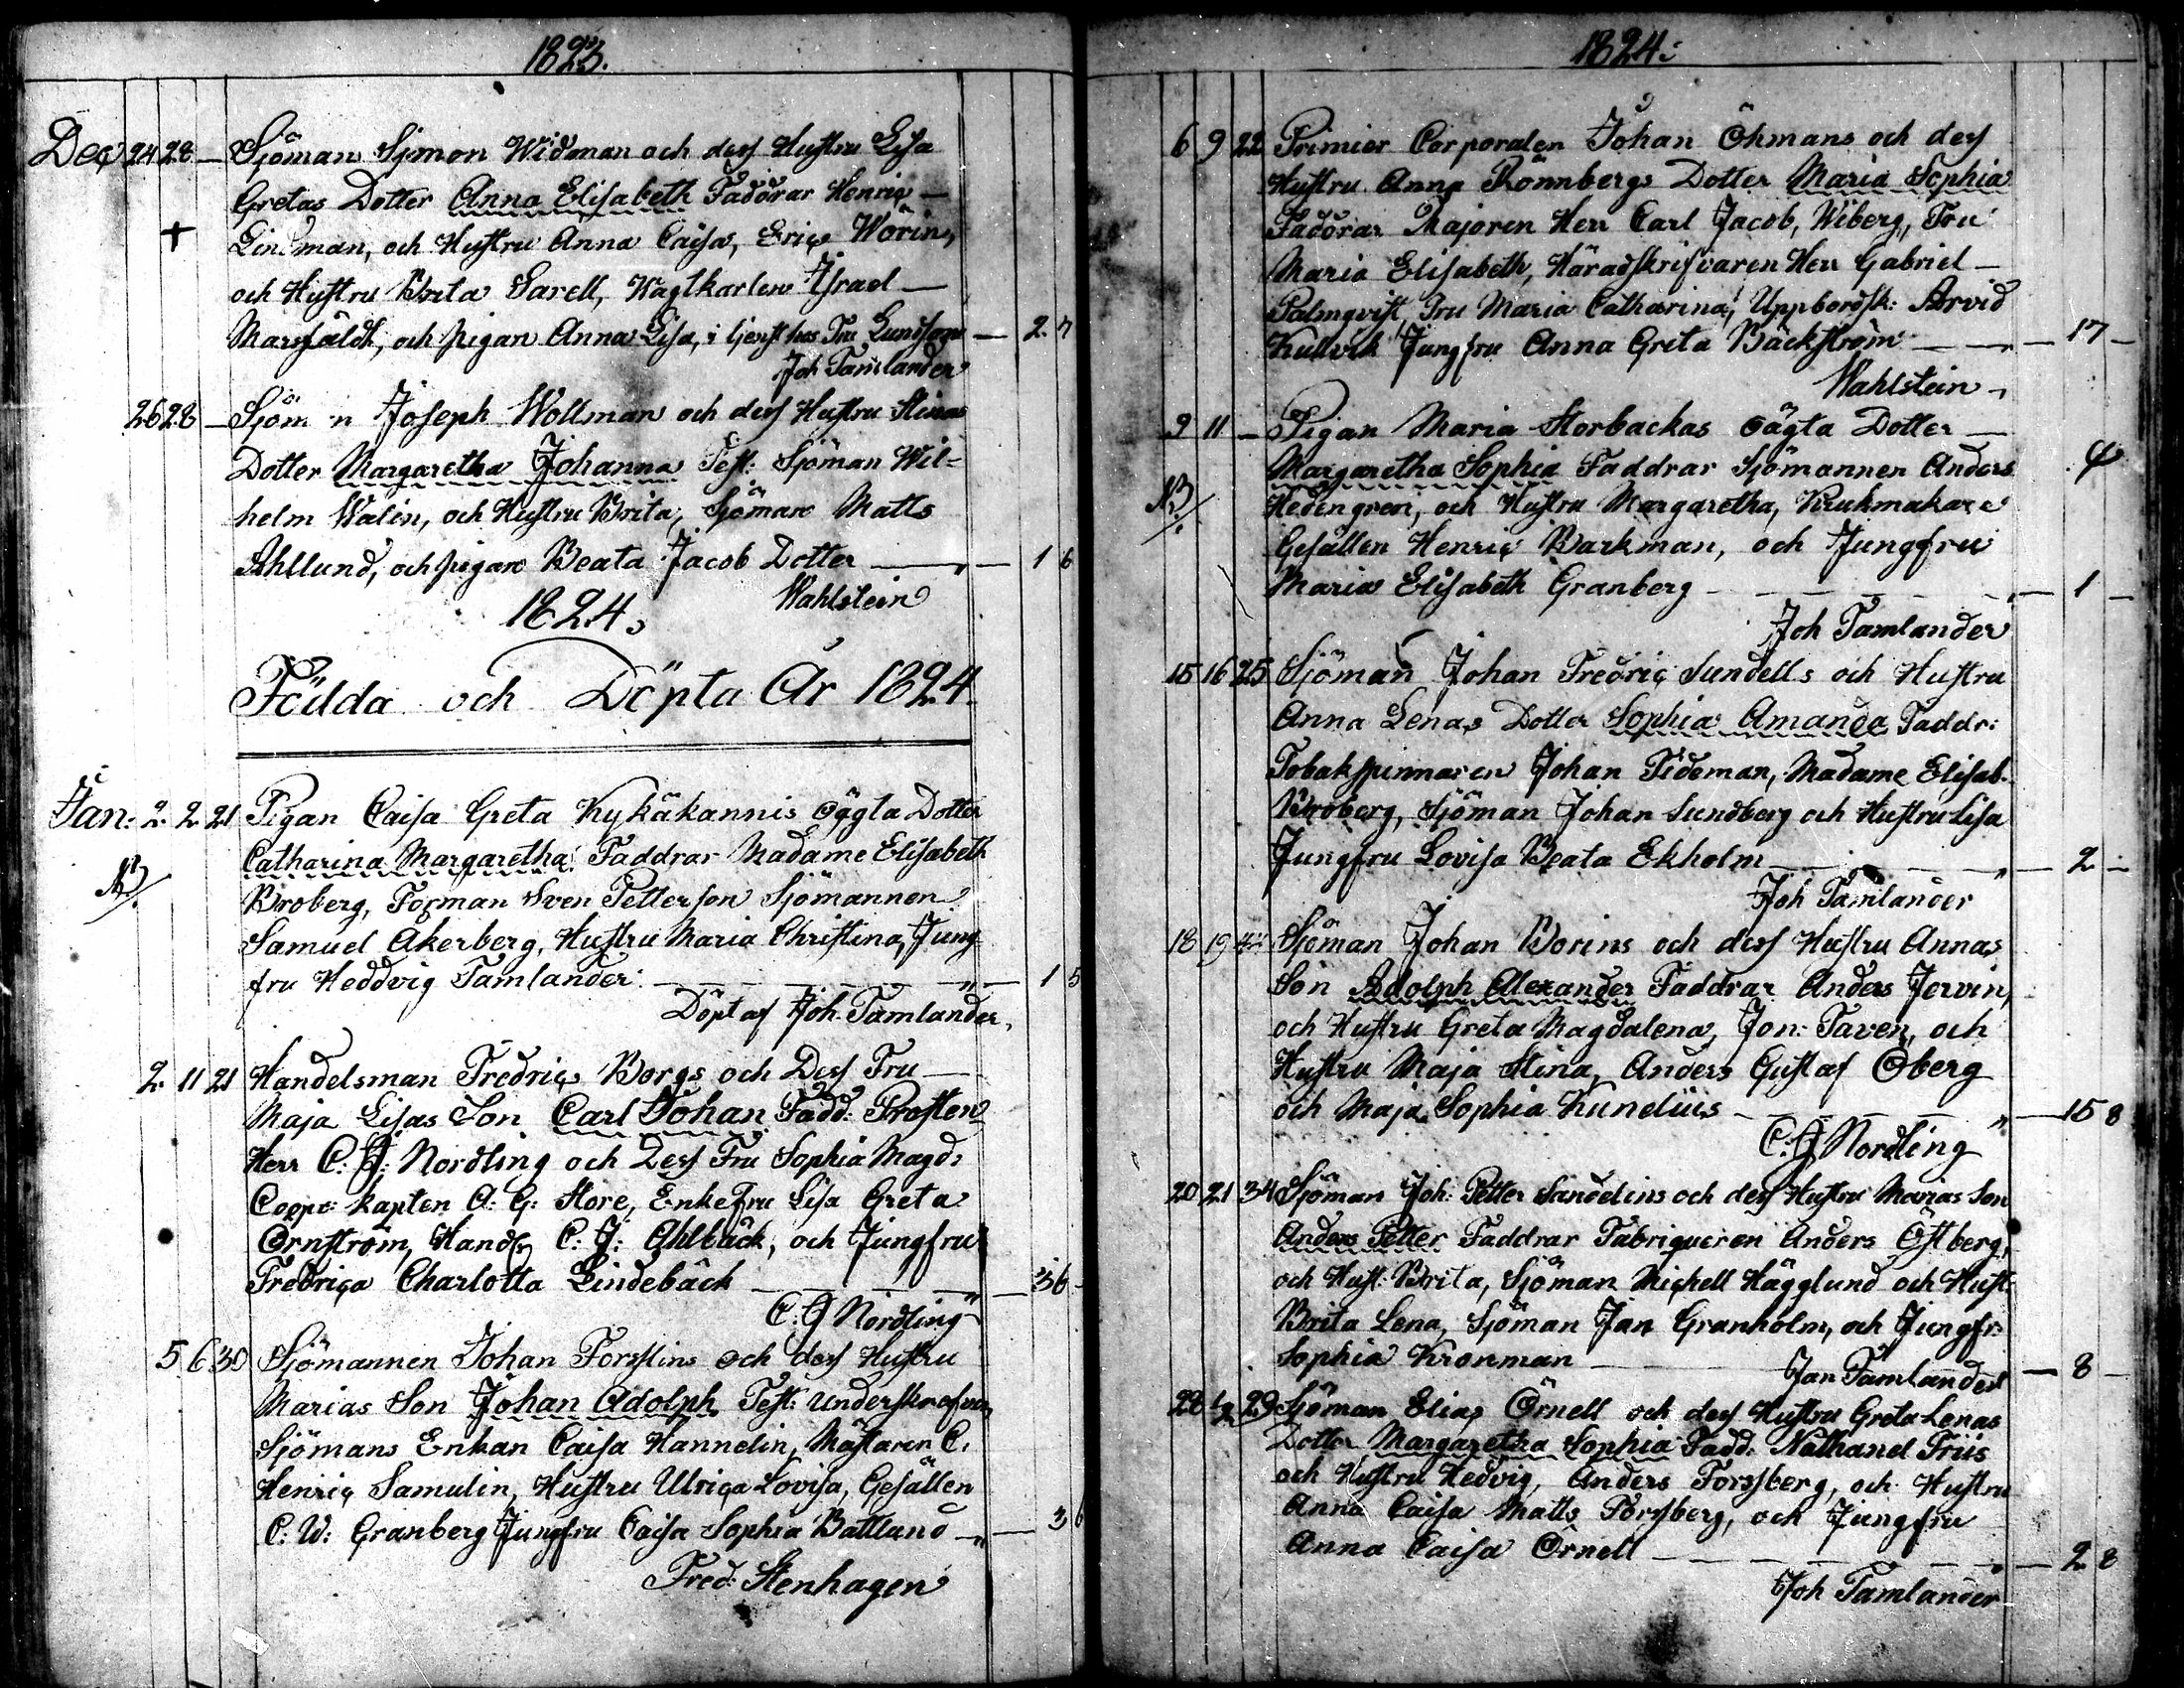 1823.
Dec 24 28 — Sjöman Simon Widman och dess Hustru Lisa
Gretas Dotter Anna Elisabeth Faddrar Henric —
+ Lindman, och Hustru Anna Caisa, Eric Worin,
och Hustru Brita Sarell, Wagtkarlen Israel —
och pigan Anna Lisa, i tjenst hos Fru — 2 7
Joh Tamlander
26 28 — Sjöm n Joseph Wollman och dess Hustru Stinas
Dotter Margaretha Johanna Test: Sjöman Wil=
helm Walin, och Hustru Brita, Sjöman Matts
Ahllund, och pigan Beata Jacob Dotter — " — 1 6
Wahlstein
1824.
Födda och Döpta År 1824.
Jan: 2. 2. 21 Pigan Caisa Greta Kykäkannis oägta Dotter
Catharina Margaretha: Faddrar Madame Elisabeth
NB/. Broberg, Forman Sven Petterson Sjömannen
Samuel Åkerberg, Hustru Maria Christina, Jung
fru Heddvig Tamlander: — " — 1 5
Döpt af Joh. Tamlander,
2. 11 21 Handelsman Fredric Borgs och Dess Fru —
Maja Lisas Son Carl Johan Fadd: Prosten
Herr C: J: Nordling och Dess Fru Sophia Magd:
kapten A: G: Store, Enkefru Lisa Greta
Örnström, C: J: Ahlbäck, och Jungfru
Fredrica Charlotta Lindebäck — " — 36 -
C: J Nordling
5 6 30 Sjömannen Johan Forsslins och dess Hustru
Marias Son Johan Adolph Test:
Sjömans Enkan Caisa Hannelin, Mästaren C.
Henric Samulin, Hustru Ulrica Lovisa, Gesällen
C: W: Granberg Jungfru Caisa Sophia Battlund — " — 3 6
Fred: Stenhagen
1824:
6 9 22 Primier Corporalen Johan Öhmans och dess
Hustru Anna Rönnbergs Dotter Maria Sophia
Faddrar Majoren Herr Carl Jacob, Wiberg, Fru
Maria Elisabeth, Häradskrifvaren Herr Gabriel —
Palmqvist, Fru Maria Catharina, Uppbördsk: Arvid
Jungfru Anna Greta Bäckström — " — 17 —
Wahlstein
9 11 — Pigan Maria Storbackas oägta Dotter —
Margaretha Sophia Faddrar Sjömannen Anders
NB/. Hedengren, och Hustru Margaretha, Krukmakare
Gesällen Henric Barkman, och Jungfru
Maria Elisabeth Granberg — " — 1 —
Joh Tamlander
15 16 25 Sjöman Johan Fredric Sundells och Hustru
Anna Lenas Dotter Sophia Amanda Faddr:
Tobakspinnaren Johan Tideman, Madame Elisab.
Broberg, Sjöman Johan Sundberg och Hustru Lisa
Jungfru Lovisa Beata Ekholm — " — 2 —
Joh Tamlander
18 19 Sjöman Johan Borins och dess Hustru Annas
Son Adolph Alexander Faddrar Anders Jervin,
och Hustru Greta Magdalena, Jon: Taven, och
Hustru Maja Stina, Anders Gustaf Öberg
och Maja Sophia Kunelius — " — 15 8
C: J Nordling
20 21 34 Sjöman Joh: Petter Sandelins och dess Hustru Marias Son
Anders Petter Faddrar Fabriqueren Anders Östberg,
och Hust: Brita, Sjöman Michell Hägglund och Hust:
Brita Lena, Sjöman Jan Granholm, och Jungfr:
Sophia Kronman — 8 —
Jan Tamlander
28 29 Sjöman Elias Örnell och dess Hustru Greta Lenas
Dotter Margaretha Sophia Fadd: Nathanel Friis
och Hustru Hedvig, Anders Forssberg, och Hustru
Anna Caisa Matts Forssberg, och Jungfru
Anna Caisa Örnell — " — 2 8
Joh Tamlander